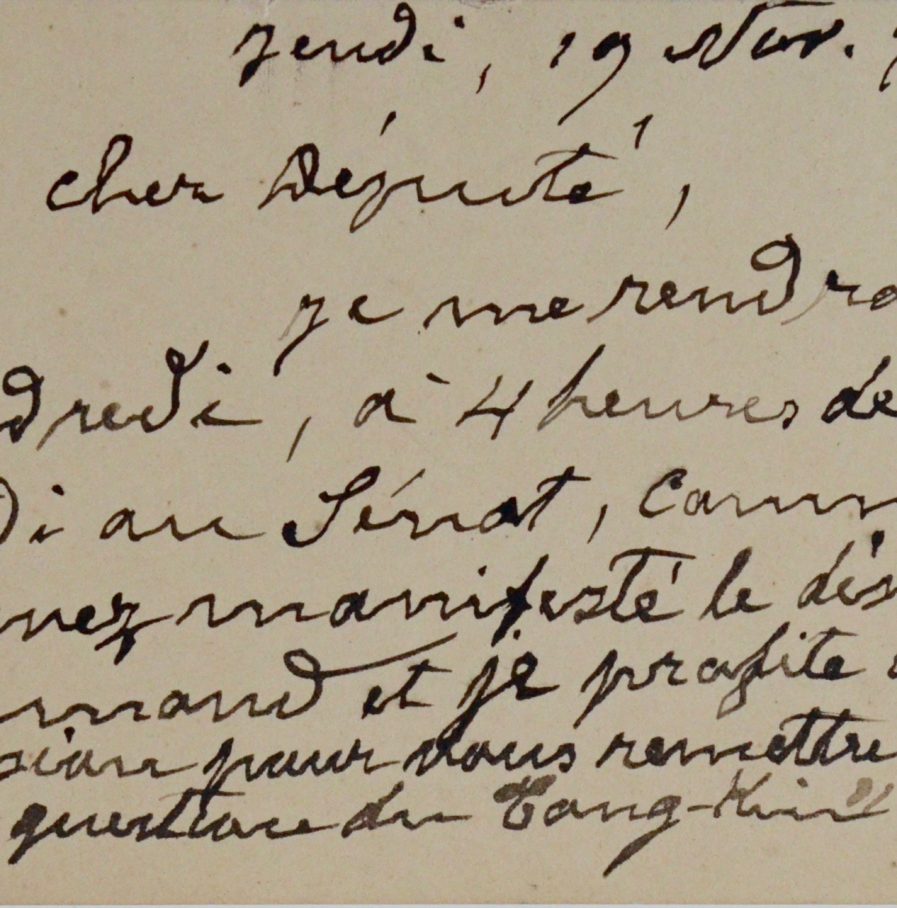 Jeudi, 19 Nov.
Cher Député,
je me rendra
dredi, à 4 heures de
di au Sénat, comm
vez manifesté le dés
mand et je profite
sion pour vous remettre
question du Tong-Kin"